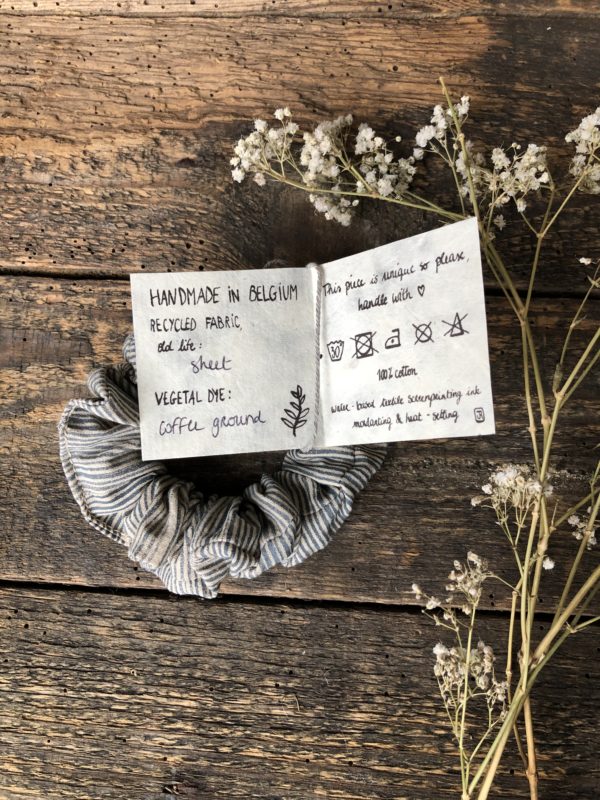 HANDMADE IN BELGIUM
RECYCLED FABRIC,
old life:
sheet
VEGETAL DYE:
coffee ground
This piece is unique so please,
handle with ♡
30
100% cotton
water-based textile screenprinting ink
mordanting & heat-setting